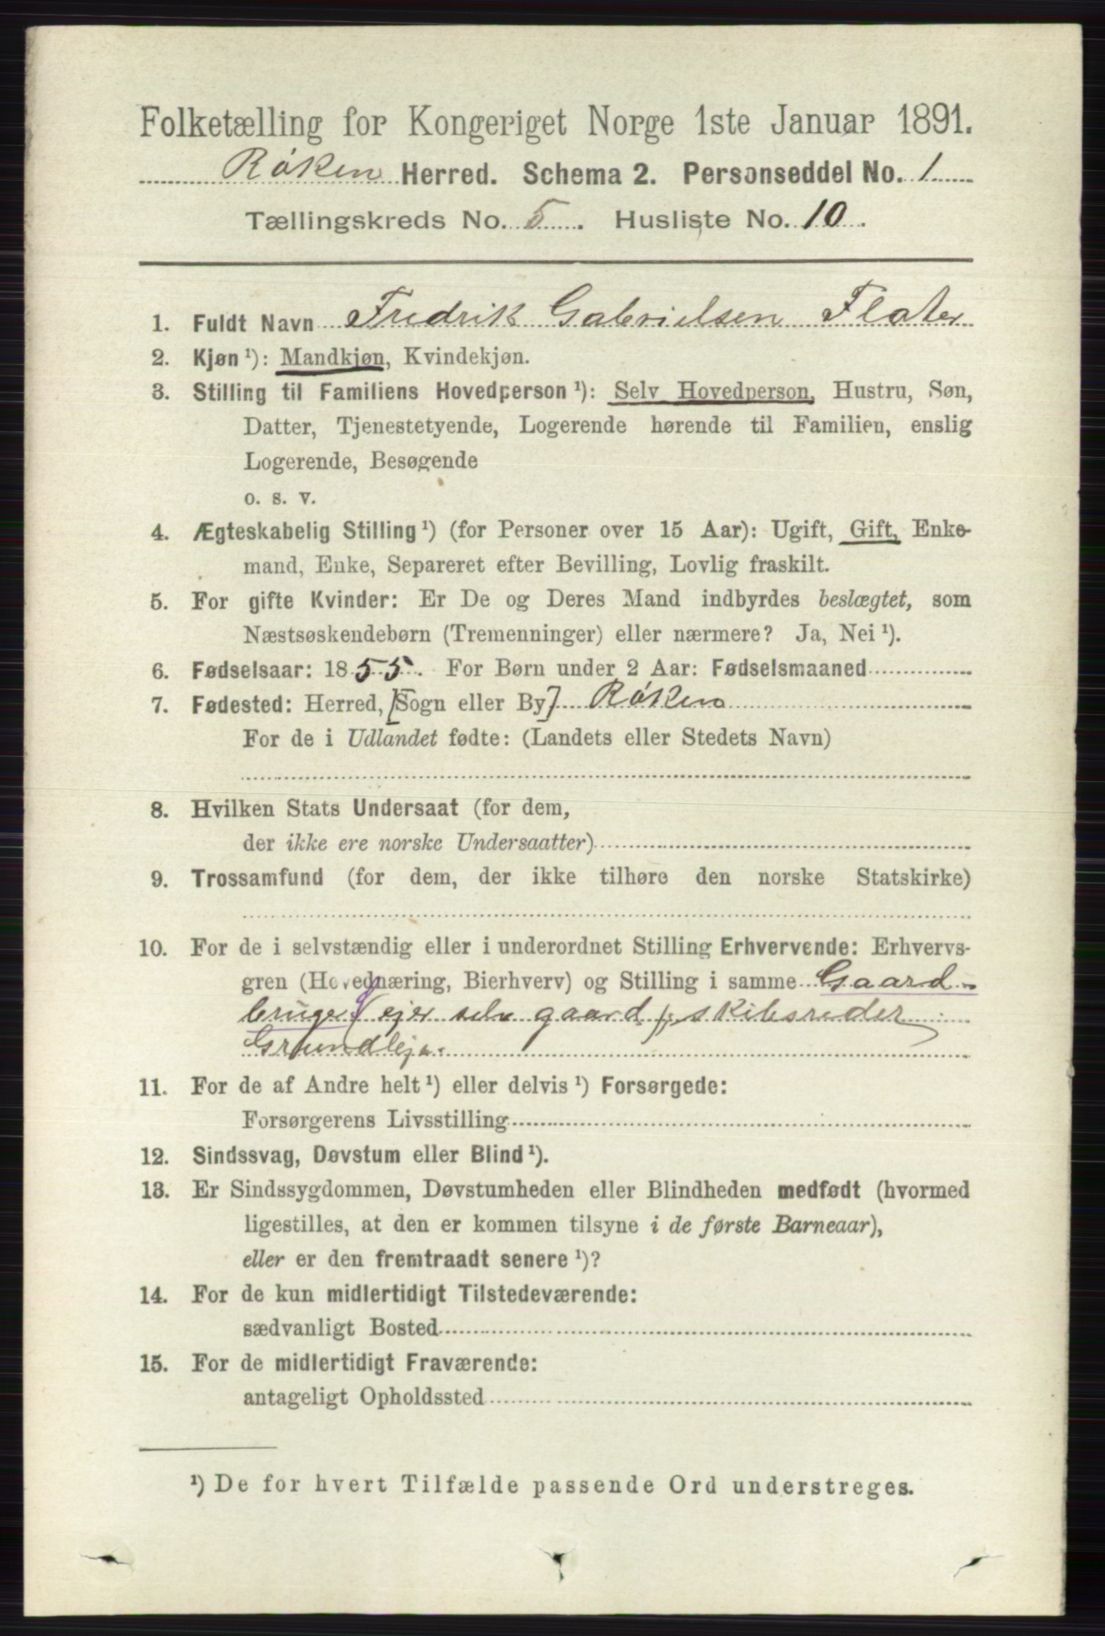 Folketælling for Kongeriget Norge 1ste Januar 1891.
Røken Herred. Schema 2. Personseddel No. 1
Tællingskreds No. 5. Husliste No. 10.
1. Fuldt Navn Fredrik Gabrielsen
2. Kjøn ¹): Mandkjøn, Kvindekjøn.
3. Stilling til Familiens Hovedperson ¹): Selv Hovedperson, Hustru, Søn,
Datter, Tjenestetyende, Logerende hørende til Familien, enslig
Logerende, Besøgende
o. s. v.
4. Ægteskabelig Stilling ¹) (for Personer over 15 Aar): Ugift, Gift, Enke-
mand, Enke, Separeret efter Bevilling, Lovlig fraskilt.
5. For gifte Kvinder: Er De og Deres Mand indbyrdes beslægtet, som
Næstsøskendebørn (Tremenninger) eller nærmere? Ja, Nei ¹).
6. Fødselsaar: 1855. For Børn under 2 Aar: Fødselsmaaned
7. Fødested: Herred, [Sogn eller By] Røken
For de i Udlandet fødte: (Landets eller Stedets Navn)
8. Hvilken Stats Undersaat (for dem,
der ikke ere norske Undersaatter)
9. Trossamfund (for dem, der ikke tilhøre den norske Statskirke)
10. For de i selvstændig eller i underordnet Stilling Erhvervende: Erhvervs-
gren (Hovednæring, Bierhverv) og Stilling i samme Gaard-
bruger (ejer selv gaard), skibsreder
11. For de af Andre helt ¹) eller delvis ¹) Forsørgede:
Forsørgerens Livsstilling
12. Sindssvag, Døvstum eller Blind ¹).
13. Er Sindssygdommen, Døvstumheden eller Blindheden medfødt (hvormed
ligestilles, at den er kommen tilsyne i de første Barneaar),
eller er den fremtraadt senere ¹)?
14. For de kun midlertidigt Tilstedeværende:
sædvanligt Bosted
15. For de midlertidigt Fraværende:
antageligt Opholdssted
¹) De for hvert Tilfælde passende Ord understreges.